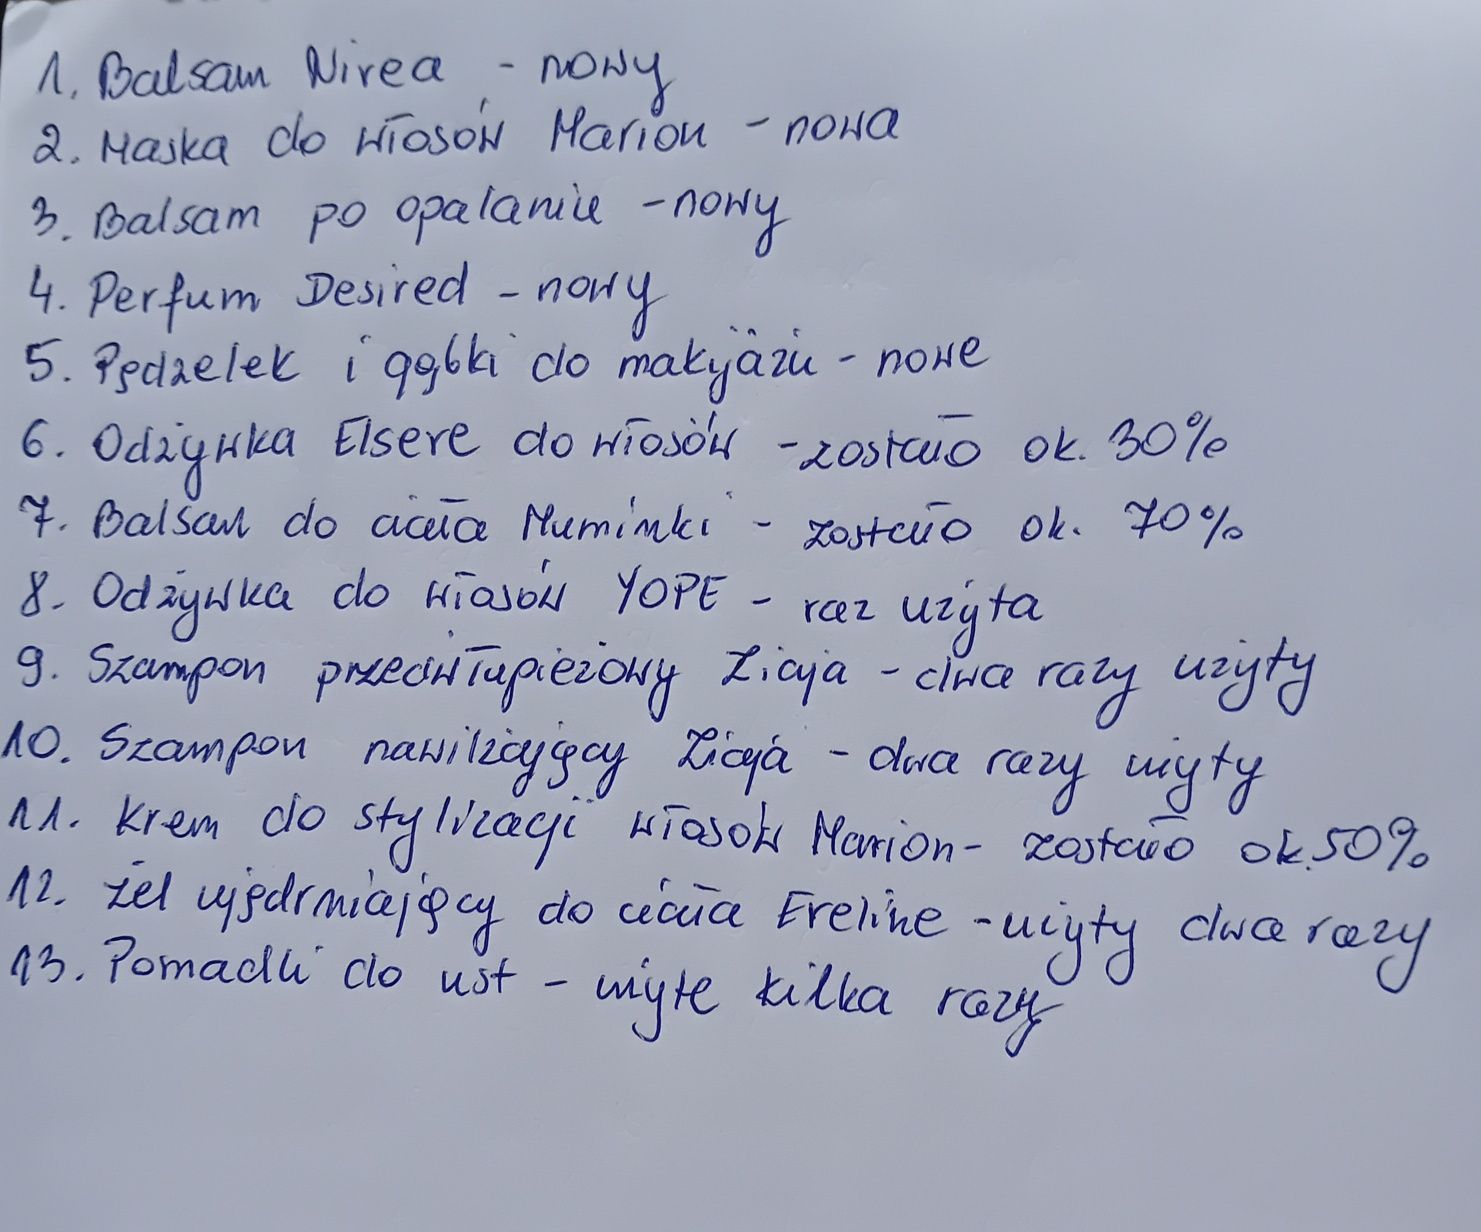 1. Balsam Nivea - nowy
2. Maska do włosów Marion - nowa
3. Balsam po opalaniu - nowy
4. Perfum Desired - nowy
5. Pędzelek i gąbki do makijażu - nowe
6. Odżywka Elseve do włosów - zostało ok. 30%
7. Balsam do ciała Muminki - zostało ok. 70%
8. Odżywka do włosów YOPE - raz użyta
9. Szampon przeciwłupieżowy Ziaja - dwa razy użyty
10. Szampon nawilżający Ziaja - dwa razy użyty
11. Krem do stylizacji włosów Marion - zostało ok. 50%
12. Żel ujędrniający do ciała Eveline - użyty dwa razy
13. Pomadki do ust - użyte kilka razy